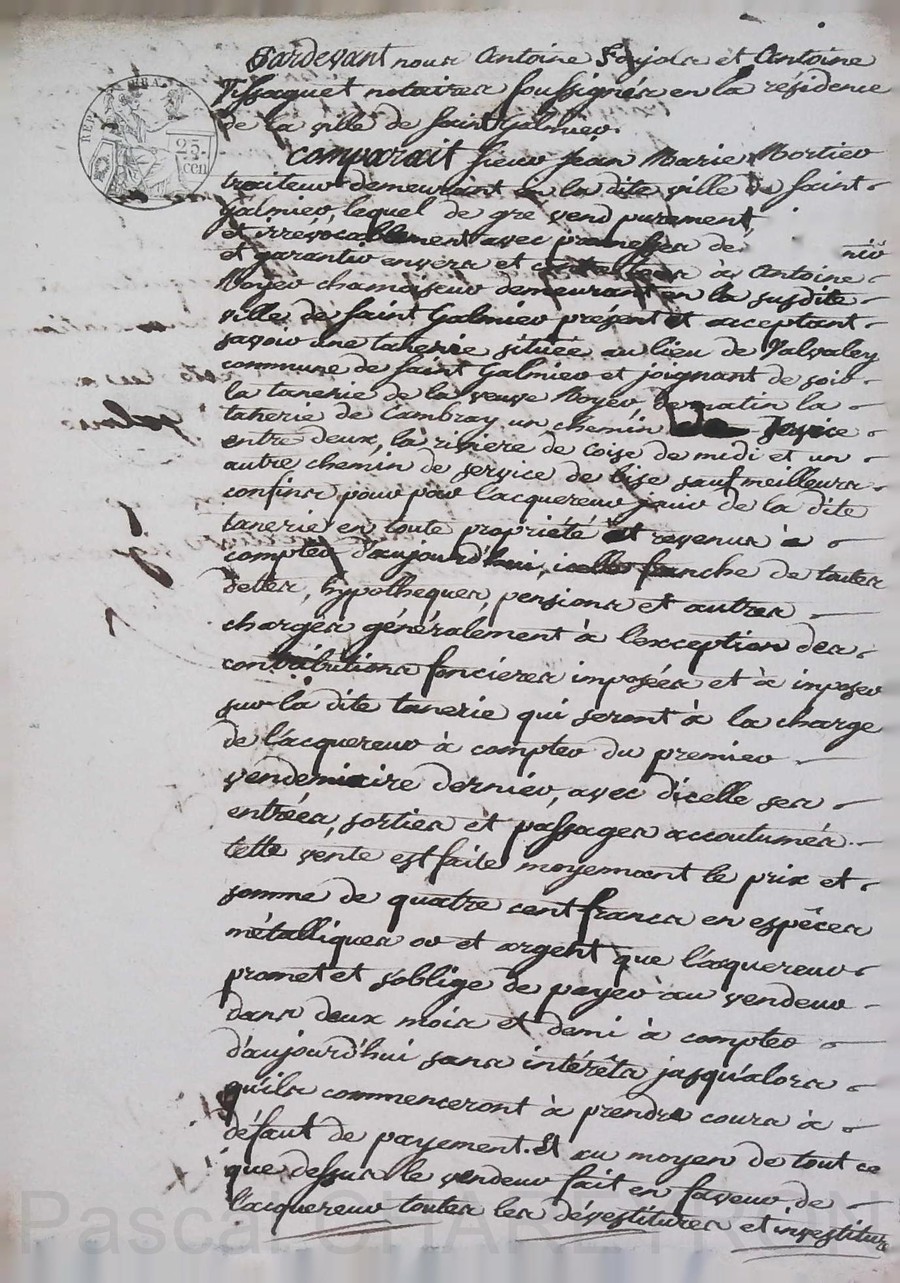 Pardevant nous Antoine Fayolx et Antoine
Tissaguet notaires soussignés en la résidence
de la ville de saint Galmier.
REP. FRA.
25.
cen
Comparait sieur Jean Marie Mortier
traiteur demeurant en la dite ville de saint
Galmier, lequel de gré vend purement
et irrévocablement avec promesses de nir
et garantir envers et contre tous à Antoine
Noyer chamoiseur demeurant en la susdite
ville de saint Galmier présent et acceptant
savoir une tanerie située au lieu de Valvaley
commune de saint Galmier et joignant de soir
la tanerie de la veuve Noyer de matin la
tanerie de Cambray un chemin de service
entre deux, la rivière de Coise de midi et un
autre chemin de service de bise sauf meilleurs
confins, pour par l'acquereur jouir de la dite
tanerie en toute propriété et revenus à
compter d'aujourd'hui, icelle franche de toutes
dettes, hypotheques, pensions et autres
charges généralement à l'exception des
contributions foncières imposées et à imposer
sur la dite tanerie qui seront à la charge
de l'acquereur à compter du premier
vendemiaire dernier, avec d'icelle ses
entrées, sorties et passages accoutumés.
Cette vente est faite moyennant le prix et
somme de quatre cent francs en espêces
métalliques or et argent que l'acquereur
promet et s'oblige de payer au vendeur
dans deux mois et demi à compter
d'aujourd'hui sans intérêts jusqu'alors
qu'ils commenceront à prendre cours à
défaut de payement. Et au moyen de tout ce
que dessus le vendeur fait en faveur de
l'acquereur toutes les dévestitures et investitures
Pascal CHAREYRON